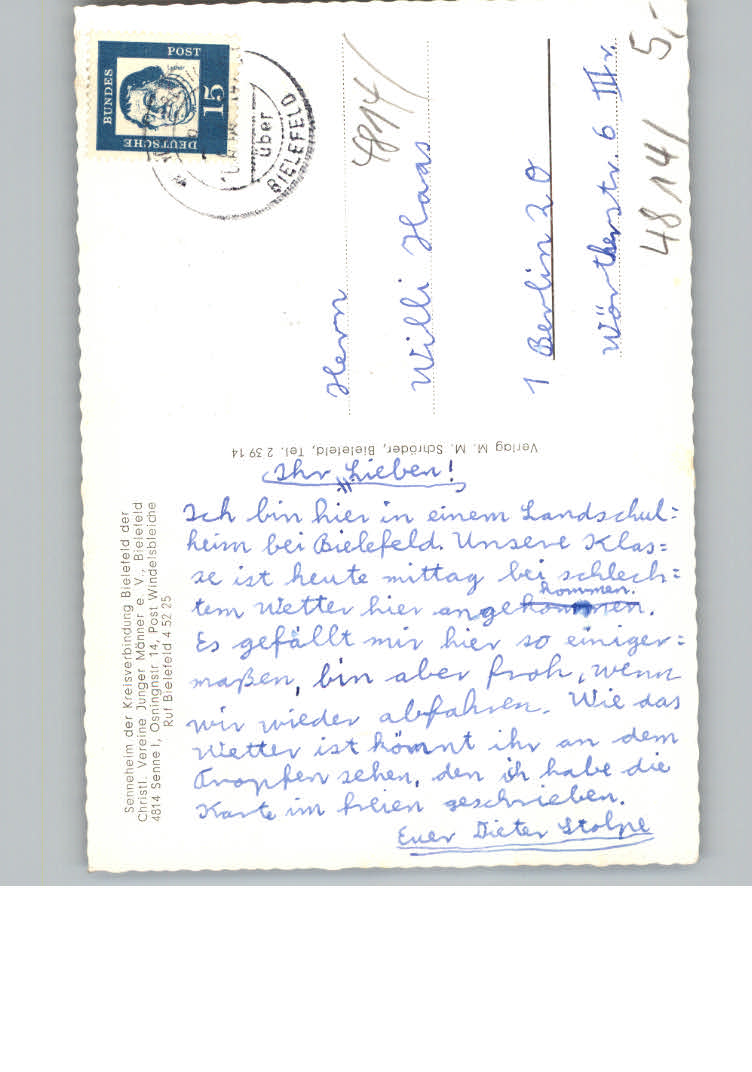 DEUTSCHE
BUNDES
POST
15
über
BIELEFELD
4814/
5,-
4814/
Herrn
Willi Haas
1 Berlin 20
Wörtherstr. 6 III Tr.
Verlag M. M. Schröder, Bielefeld, Tel. 2 39 14
Senneheim der Kreisverbindung Bielefeld der
Christl. Vereine Junger Männer e. V., Bielefeld
4814 Senne I, Osningnstr 14, Post Windelsbleiche
Ruf Bielefeld 4 52 25
Ihr Lieben!
Ich bin hier in einem Landschul=
heim bei Bielefeld. Unsere Klas=
se ist heute mittag bei schlech=
tem Wetter hier angekommen.
kommen.
Es gefällt mir hier so einiger=
maßen, bin aber froh, wenn
wir wieder abfahren. Wie das
Wetter ist könnt ihr an dem
Tropfen sehen, den ich habe die
Karte im freien geschrieben.
Euer Dieter Stolpe